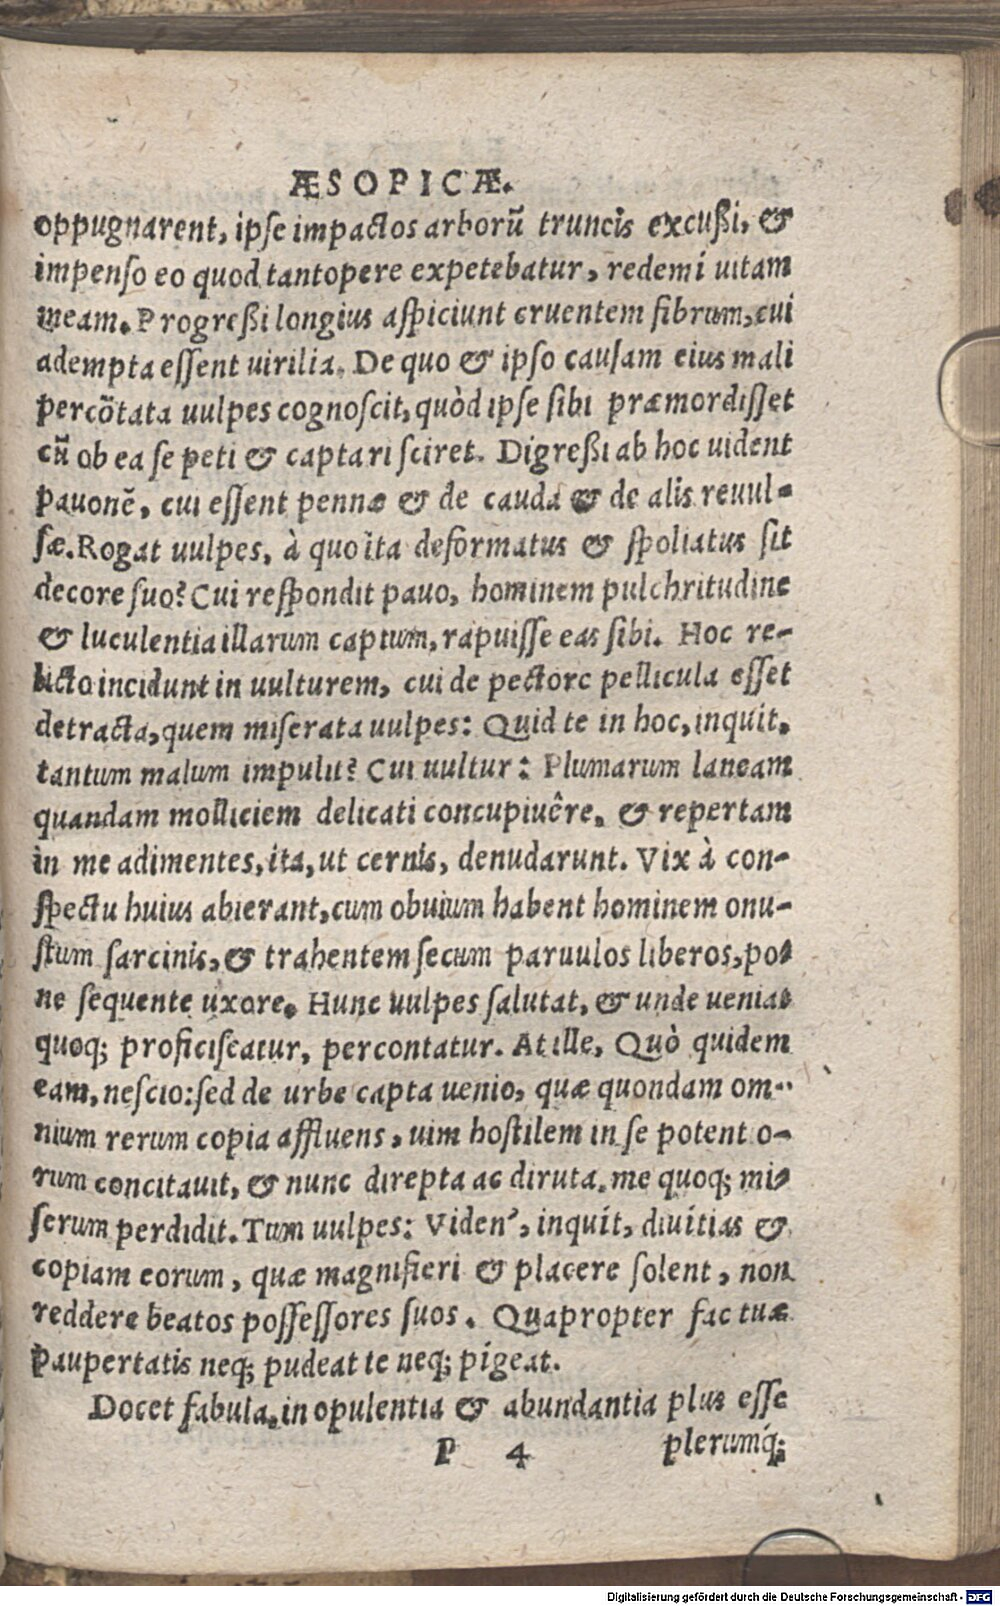 ÆSOPICÆ.
oppugnarent, ipse impactos arborū truncis excußi, &
impenso eo quod tantopere expetebatur, redemi uitam
meam. Progreßi longius aspiciunt cruentem fibrum, cui
adempta essent uirilia. De quo & ipso causam eius mali
percōtata uulpes cognoscit, quòd ipse sibi præmordisset
cū ob ea se peti & captari sciret. Digreßi ab hoc uident
pauonē, cui essent pennæ & de cauda & de alis reuul-
sæ. Rogat uulpes, à quo ita deformatus & spoliatus sit
decore suo? Cui respondit pauo, hominem pulchritudine
& luculentia illarum captum, rapuisse eas sibi. Hoc re-
licto incidunt in uulturem, cui de pectore pellicula esset
detracta, quem miserata uulpes: Quid te in hoc, inquit,
tantum malum impulit? Cui uultur: Plumarum laneam
quandam molliciem delicati concupiuêre, & repertam
in me adimentes, ita, ut cernis, denudarunt. Vix à con-
spectu huius abierant, cum obuium habent hominem onu-
stum sarcinis, & trahentem secum paruulos liberos, po-
ne sequente uxore. Hunc uulpes salutat, & unde ueniat
quoq; proficiscatur, percontatur. At ille, Quò quidem
eam, nescio: sed de urbe capta uenio, quæ quondam om-
nium rerum copia affluens, uim hostilem in se potento-
rum concitauit, & nunc direpta ac diruta, me quoq; mi-
serum perdidit. Tum uulpes: Viden', inquit, diuitias &
copiam eorum, quæ magnifieri & placere solent, non
reddere beatos possessores suos. Quapropter fac tuæ
paupertatis neq; pudeat te neq; pigeat.
Docet fabula, in opulentia & abundantia plus esse
P 4 plerumq́;
Digitalisierung gefördert durch die Deutsche Forschungsgemeinschaft - DFG